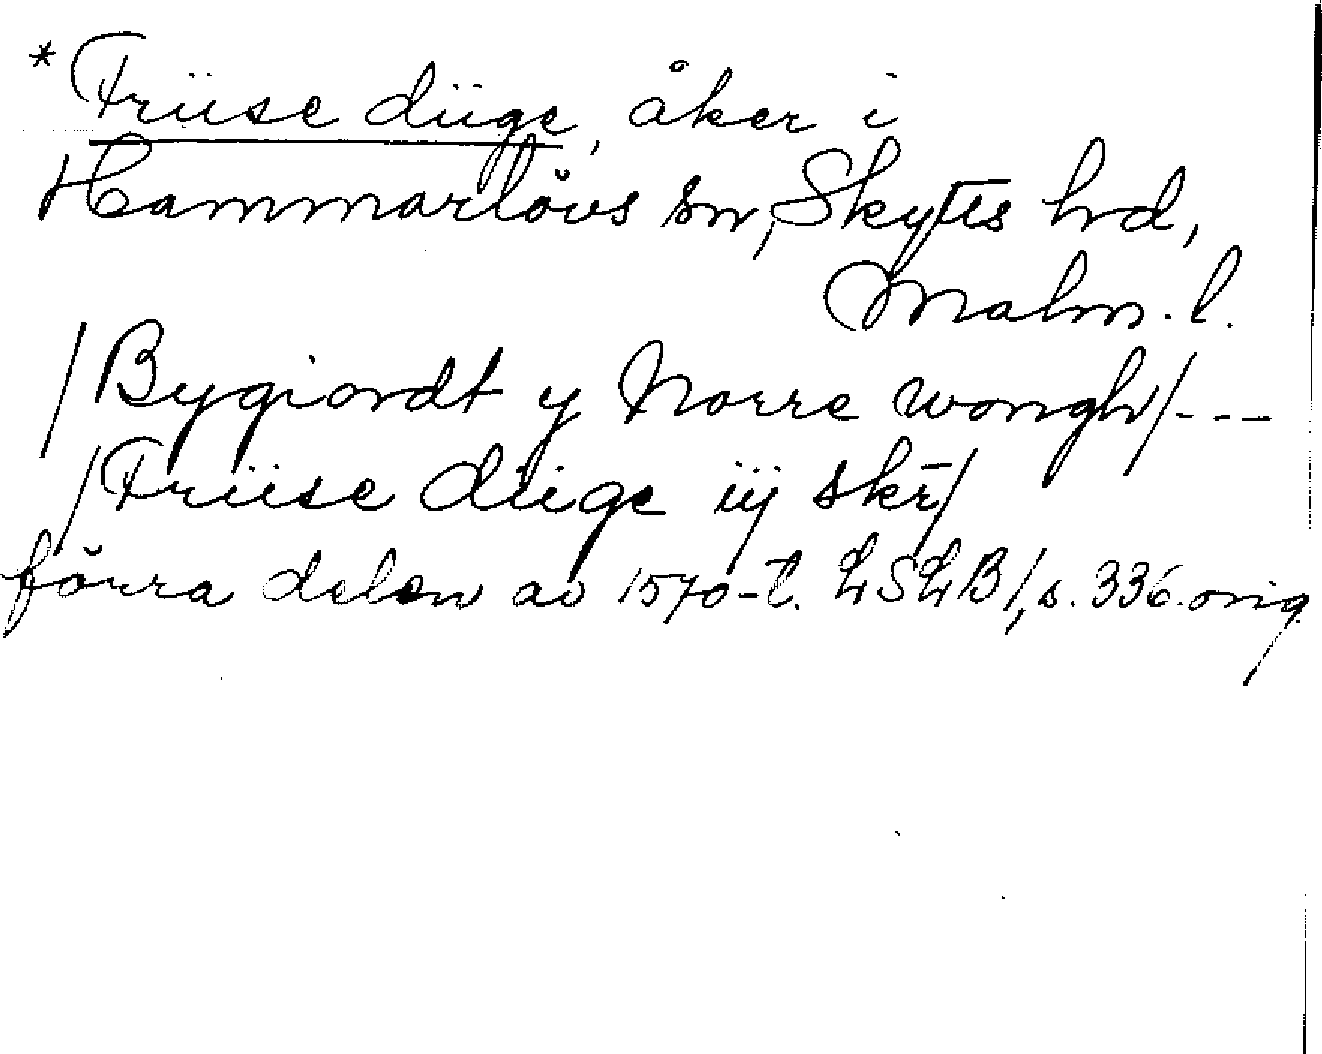 * Früse düge, åker i
Hammarlövs sn, Skytts hd,
Malm. l.
/Bygiordt y Norre wongh/---
/Früse düge iij skr̄/
förra delen av 1570-t. LSLB/, s. 336. orig.